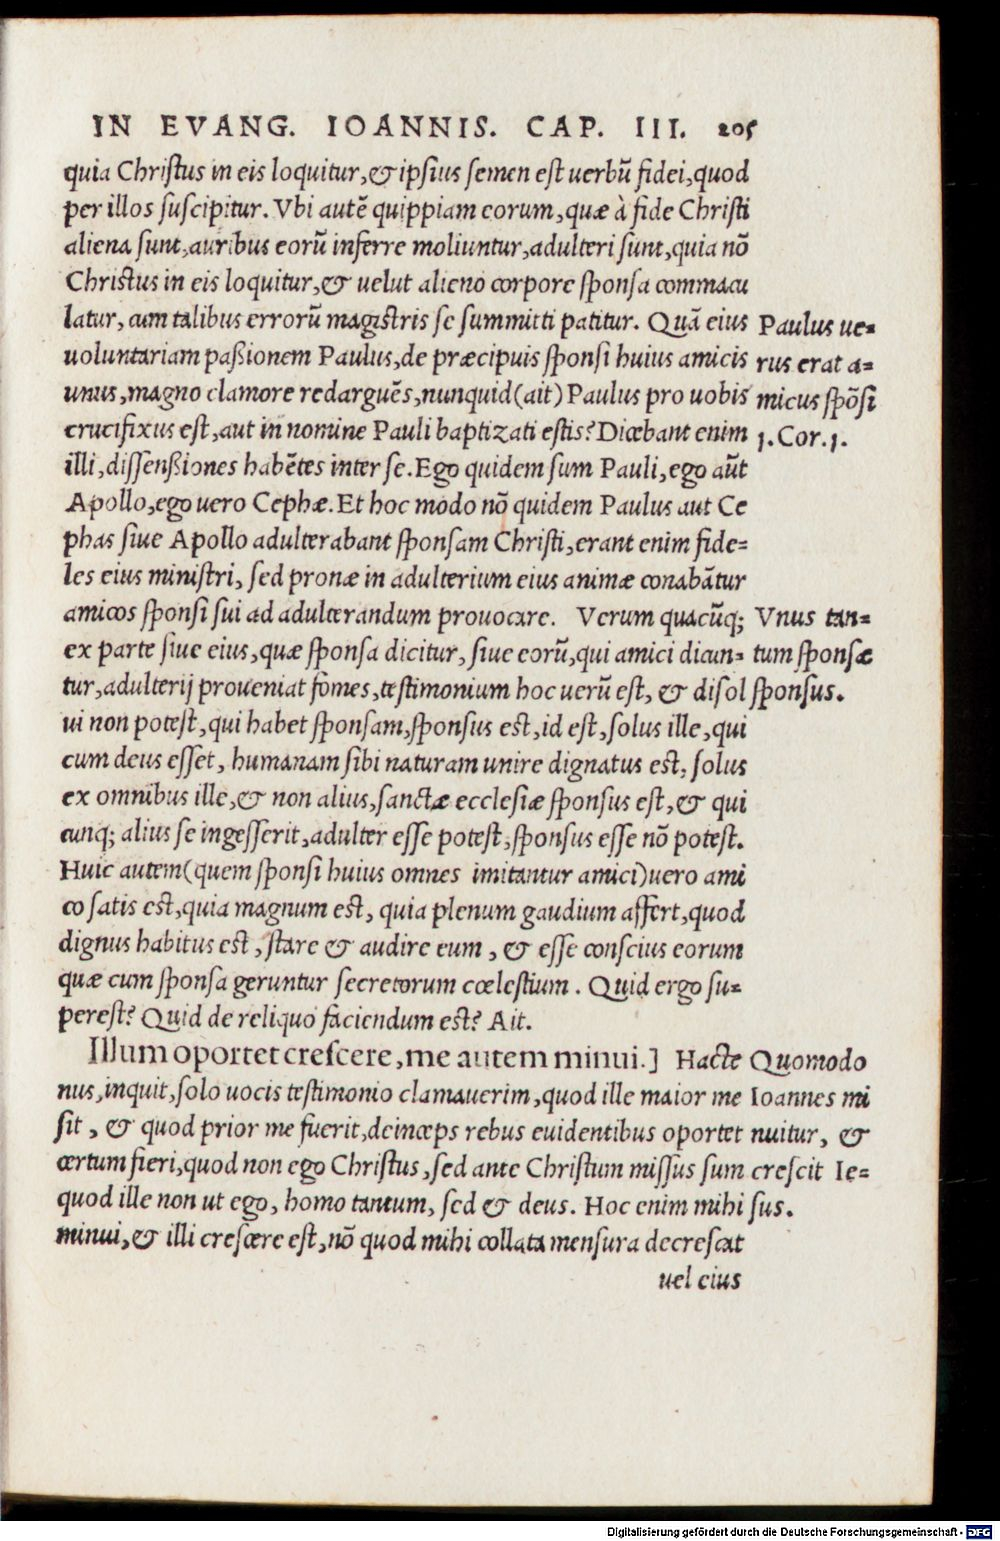 IN EVANG. IOANNIS. CAP. III. 205
quia Christus in eis loquitur, & ipsius semen est uerbũ fidei, quod
per illos suscipitur. Vbi autẽ quippiam eorum, quæ à fide Christi
aliena sunt, auribus eorũ inferre moliuntur, adulteri sunt, quia nõ
Christus in eis loquitur, & uelut alieno corpore sponsa commacu
latur, cum talibus errorũ magistris se summitti patitur. Quã eius
uoluntariam paßionem Paulus, de præcipuis sponsi huius amicis
unus, magno clamore redarguẽs, nunquid (ait) Paulus pro uobis
crucifixus est, aut in nomine Pauli baptizati estis? Dicebant enim
illi, dissenßiones habẽtes inter se. Ego quidem sum Pauli, ego aũt
Apollo, ego uero Cephæ. Et hoc modo nõ quidem Paulus aut Ce
phas siue Apollo adulterabant sponsam Christi, erant enim fide=
les eius ministri, sed pronæ in adulterium eius animæ conabãtur
amicos sponsi sui ad adulterandum prouocare. Verum quacũq;
ex parte siue eius, quæ sponsa dicitur, siue eorũ, qui amici dicun=
tur, adulterij proueniat fomes, testimonium hoc uerũ est, & dissol
ui non potest, qui habet sponsam, sponsus est, id est, solus ille, qui
cum deus esset, humanam sibi naturam unire dignatus est, solus
ex omnibus ille, & non alius, sanctæ ecclesiæ sponsus est, & qui
cunq; alius se ingesserit, adulter esse potest, sponsus esse nõ potest.
Huic autem (quem sponsi huius omnes imitantur amici) uero ami
co satis est, quia magnum est, quia plenum gaudium affert, quod
dignus habitus est, stare & audire eum, & esse conscius eorum
quæ cum sponsa geruntur secretorum cœlestium. Quid ergo su=
perest? Quid de reliquo faciendum est? Ait.
Illum oportet crescere, me autem minui.] Hacte
nus, inquit, solo uocis testimonio clamauerim, quod ille maior me
sit, & quod prior me fuerit, deinceps rebus euidentibus oportet
certum fieri, quod non ego Christus, sed ante Christum missus sum
quod ille non ut ego, homo tantum, sed & deus. Hoc enim mihi
minui, & illi crescere est, nõ quod mihi collata mensura decrescat
uel eius
Paulus ue=
rus erat a=
micus spõsi
1. Cor. 1.
Vnus tan=
tum sponsæ
sponsus.
Quomodo
Ioannes mi
nuitur, &
crescit Ie=
sus.
Digitalisierung gefördert durch die Deutsche Forschungsgemeinschaft - DFG